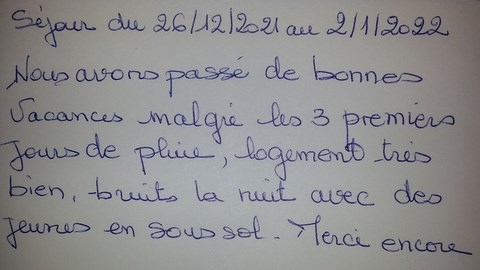 Séjour du 26/12/2021 au 2/1/2022
Nous avons passé de bonnes
Vacances malgré les 3 premiers
Jours de pluie, logement très
bien, bruits la nuit avec des
jeunes en sous sol. Merci encore